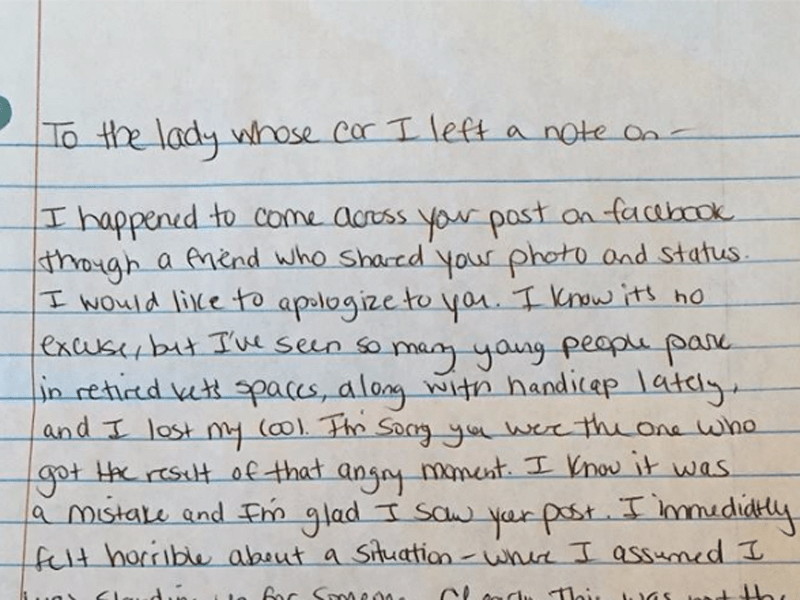 To the lady whose car I left a note on -
I happened to come across your post on facebook
through a friend who shared your photo and status.
I would like to apologize to you. I know it's no
excuse, but I've seen so many young people park
in retired vets spaces, along with handicap lately,
and I lost my cool. I'm sorry you were the one who
got the result of that angry moment. I know it was
a mistake and I'm glad I saw your post. I immediatly
felt horrible about a situation - where I assumed I
was standing up for someone. Clearly This was not the